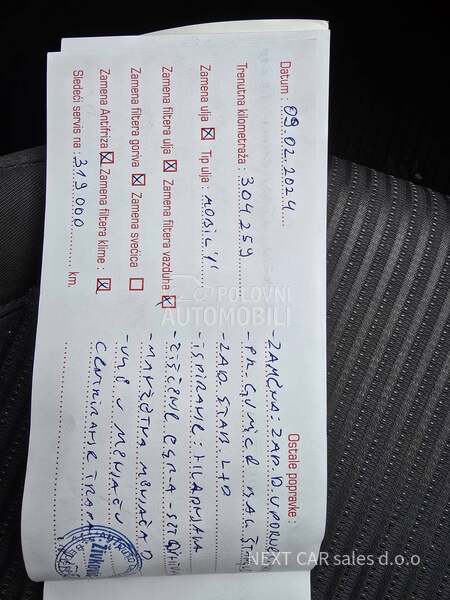 Datum : 09.02.2024
Trenutna kilometraža : 304259
Zamena ulja ☒ Tip ulja : MOBIL 1
Zamena filtera ulja ☒ Zamena filtera vazduha ☒
Zamena filtera goriva ☒ Zamena svećica ☐
Zamena Antifriza ☒ Zamena filtera klime : ☒
Sledeći servis na : 319.000 km.
Ostale popravke :
- ZAMENA : ZAD.
- PR. GUMICE BAL.
- ZAD. ŠTAB. L+D
- ISPIRANJE : HLADNJAKA
- ČIŠĆENJE
- MENJAČA
- ULJE U MENJAČU
CENTRIRANJE TRAPA
POLOVNI
AUTOMOBILI
NEXT CAR sales d.o.o